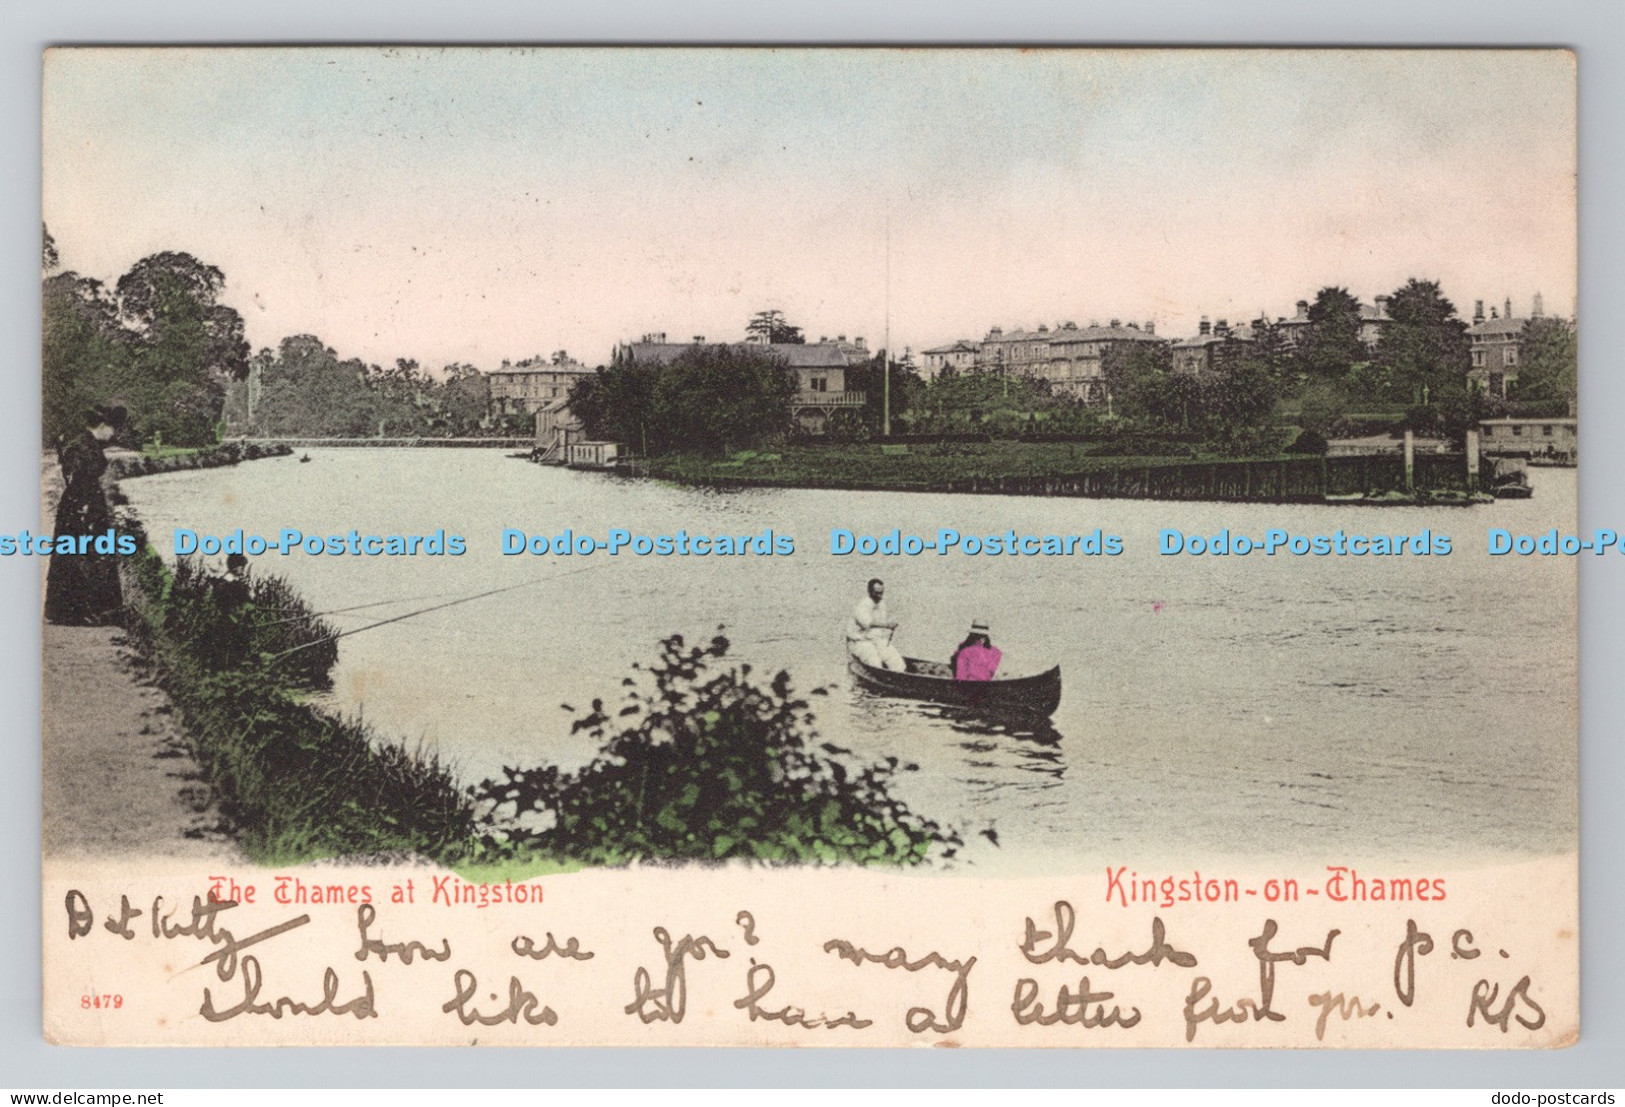 stcards Dodo-Postcards Dodo-Postcards Dodo-Postcards Dodo-Postcards Dodo-Po
The Thames at Kingston
Kingston-on-Thames
Kitty – How are you? many thank for p.c.
8479
should like to have a letter from you. KB
delcampe.net
dodo-postcards